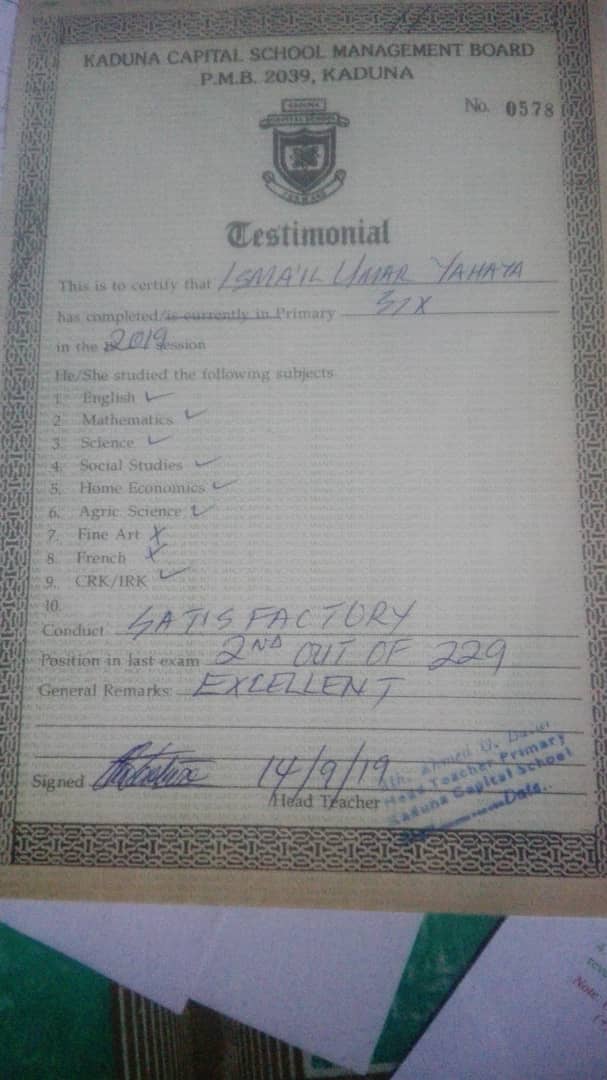 KADUNA CAPITAL SCHOOL MANAGEMENT BOARD
P.M.B. 2039, KADUNA
No. 0578
KADUNA
CAPITAL SCHOOL
Testimonial
This is to certify that ISMA'IL UMAR YAHAYA
has completed/is currently in Primary SIX
in the 2019 session
He/She studied the following subjects
1. English ✓
2. Mathematics ✓
3. Science ✓
4. Social Studies ✓
5. Home Economics ✓
6. Agric Science ✓
7. Fine Art X
8. French X
9. CRK/IRK ✓
10.
Conduct SATISFACTORY
Position in last exam 2ND OUT OF 229
General Remarks: EXCELLENT
Signed 14/9/19
Head Teacher
Ahmed U.
Head Teacher Primary
Kaduna Capital School
Date
Note: